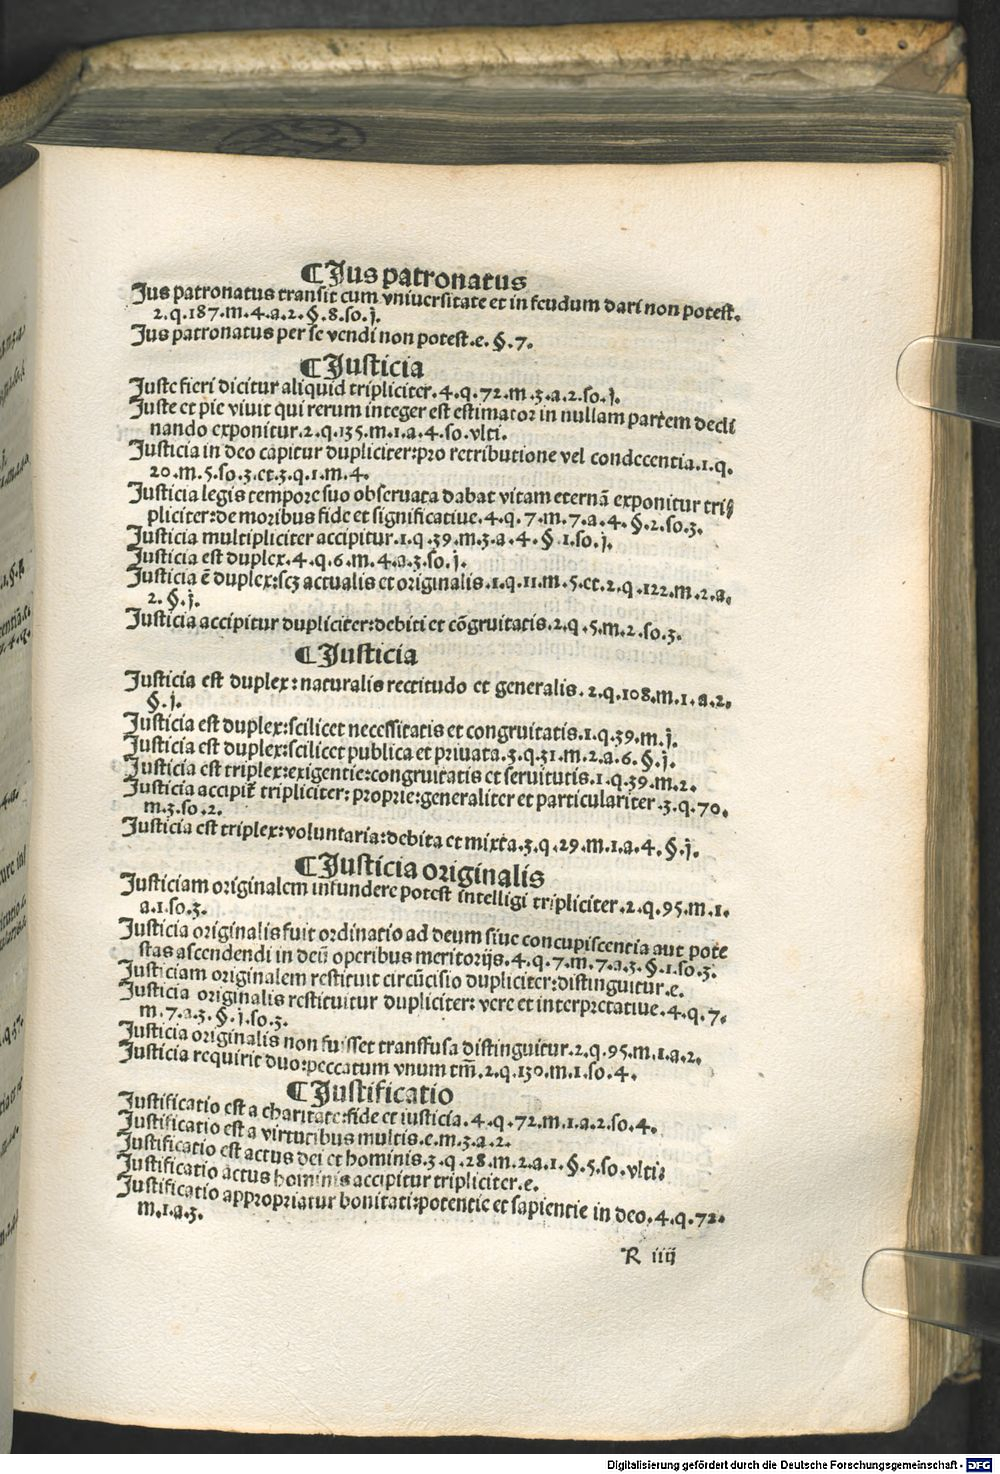 ¶Jus patronatus
Jus patronatus transit cum vniuersitate et in feudum dari non potest.
2.q.187.m.4.a.2.§.8.so.j.
Jus patronatus per se vendi non potest.e.§.7.
¶Justicia
Juste fieri dicitur aliquid tripliciter.4.q.72.m.3.a.2.so.j.
Juste et pie viuit qui rerum integer est estimator in nullam partem decli
nando exponitur.2.q.135.m.1.a.4.so.vlti.
Justicia in deo capitur dupliciter:pro retributione vel condecentia.1.q.
20.m.5.so.3.et.3.q.1.m.4.
Justicia legis tempore suo obseruata dabat vitam eternã exponitur tri⸗
pliciter:de moribus fide et significatiue.4.q.7.m.7.a.4.§.2.so.3.
Justicia multipliciter accipitur.1.q.39.m.3.a.4.§ 1.so.j.
Justicia est duplex.4.q.6.m.4.a.3.so.j.
Justicia ẽ duplex:scꝫ actualis et originalis.1.q.11.m.5.et.2.q.122.m.2.a.
2.§.j.
Justicia accipitur dupliciter:debiti et cõgruitatis.2.q.5.m.2.so.3.
¶Justicia
Justicia est duplex:naturalis rectitudo et generalis.2.q.108.m.1.a.2.
§.j.
Justicia est duplex:scilicet necessitatis et congruitatis.1.q.39.m.j.
Justicia est duplex:scilicet publica et priuata.3.q.31.m.2.a.6.§.j.
Justicia est triplex:exigentie:congruitatis et seruitutis.1.q.39.m.2.
Justicia accipit̃ tripliciter:proprie:generaliter et particulariter.3.q.70.
m.3.so.2.
Justicia est triplex:voluntaria:debita et mixta.3.q.29.m.1.a.4.§.j.
¶Justicia originalis
Justiciam originalem infundere potest intelligi tripliciter.2.q.95.m.1.
a.1.so.3.
Justicia originalis fuit ordinatio ad deum siue concupiscentia aut pote
stas ascendendi in deũ operibus meritorijs.4.q.7.m.7.a.3.§.1.so.3.
Justiciam originalem restituit circũcisio dupliciter:distinguitur.e.
Justicia originalis restituitur dupliciter:vere et interpretatiue.4.q.7.
m.7.a.3.§.j.so.3.
Justicia originalis non fuisset transfusa distinguitur.2.q.95.m.1.a.2.
Justicia requirit duo:peccatum vnum tm̃.2.q.130.m.1.so.4.
¶Justificatio
Justificatio est a charitate:fide et iusticia.4.q.72.m.1.a.2.so.4.
Justificatio est a virtutibus multis.e.m.3.a.2.
Justificatio est actus dei et hominis.3.q.28.m.2.a.1.§.5.so.vlti:
Justificatio actus hominis accipitur tripliciter.e.
Justificatio appropriatur bonitati:potentie et sapientie in deo.4.q.72.
m.1.a.3.
R iiij
Digitalisierung gefördert durch die Deutsche Forschungsgemeinschaft - DFG